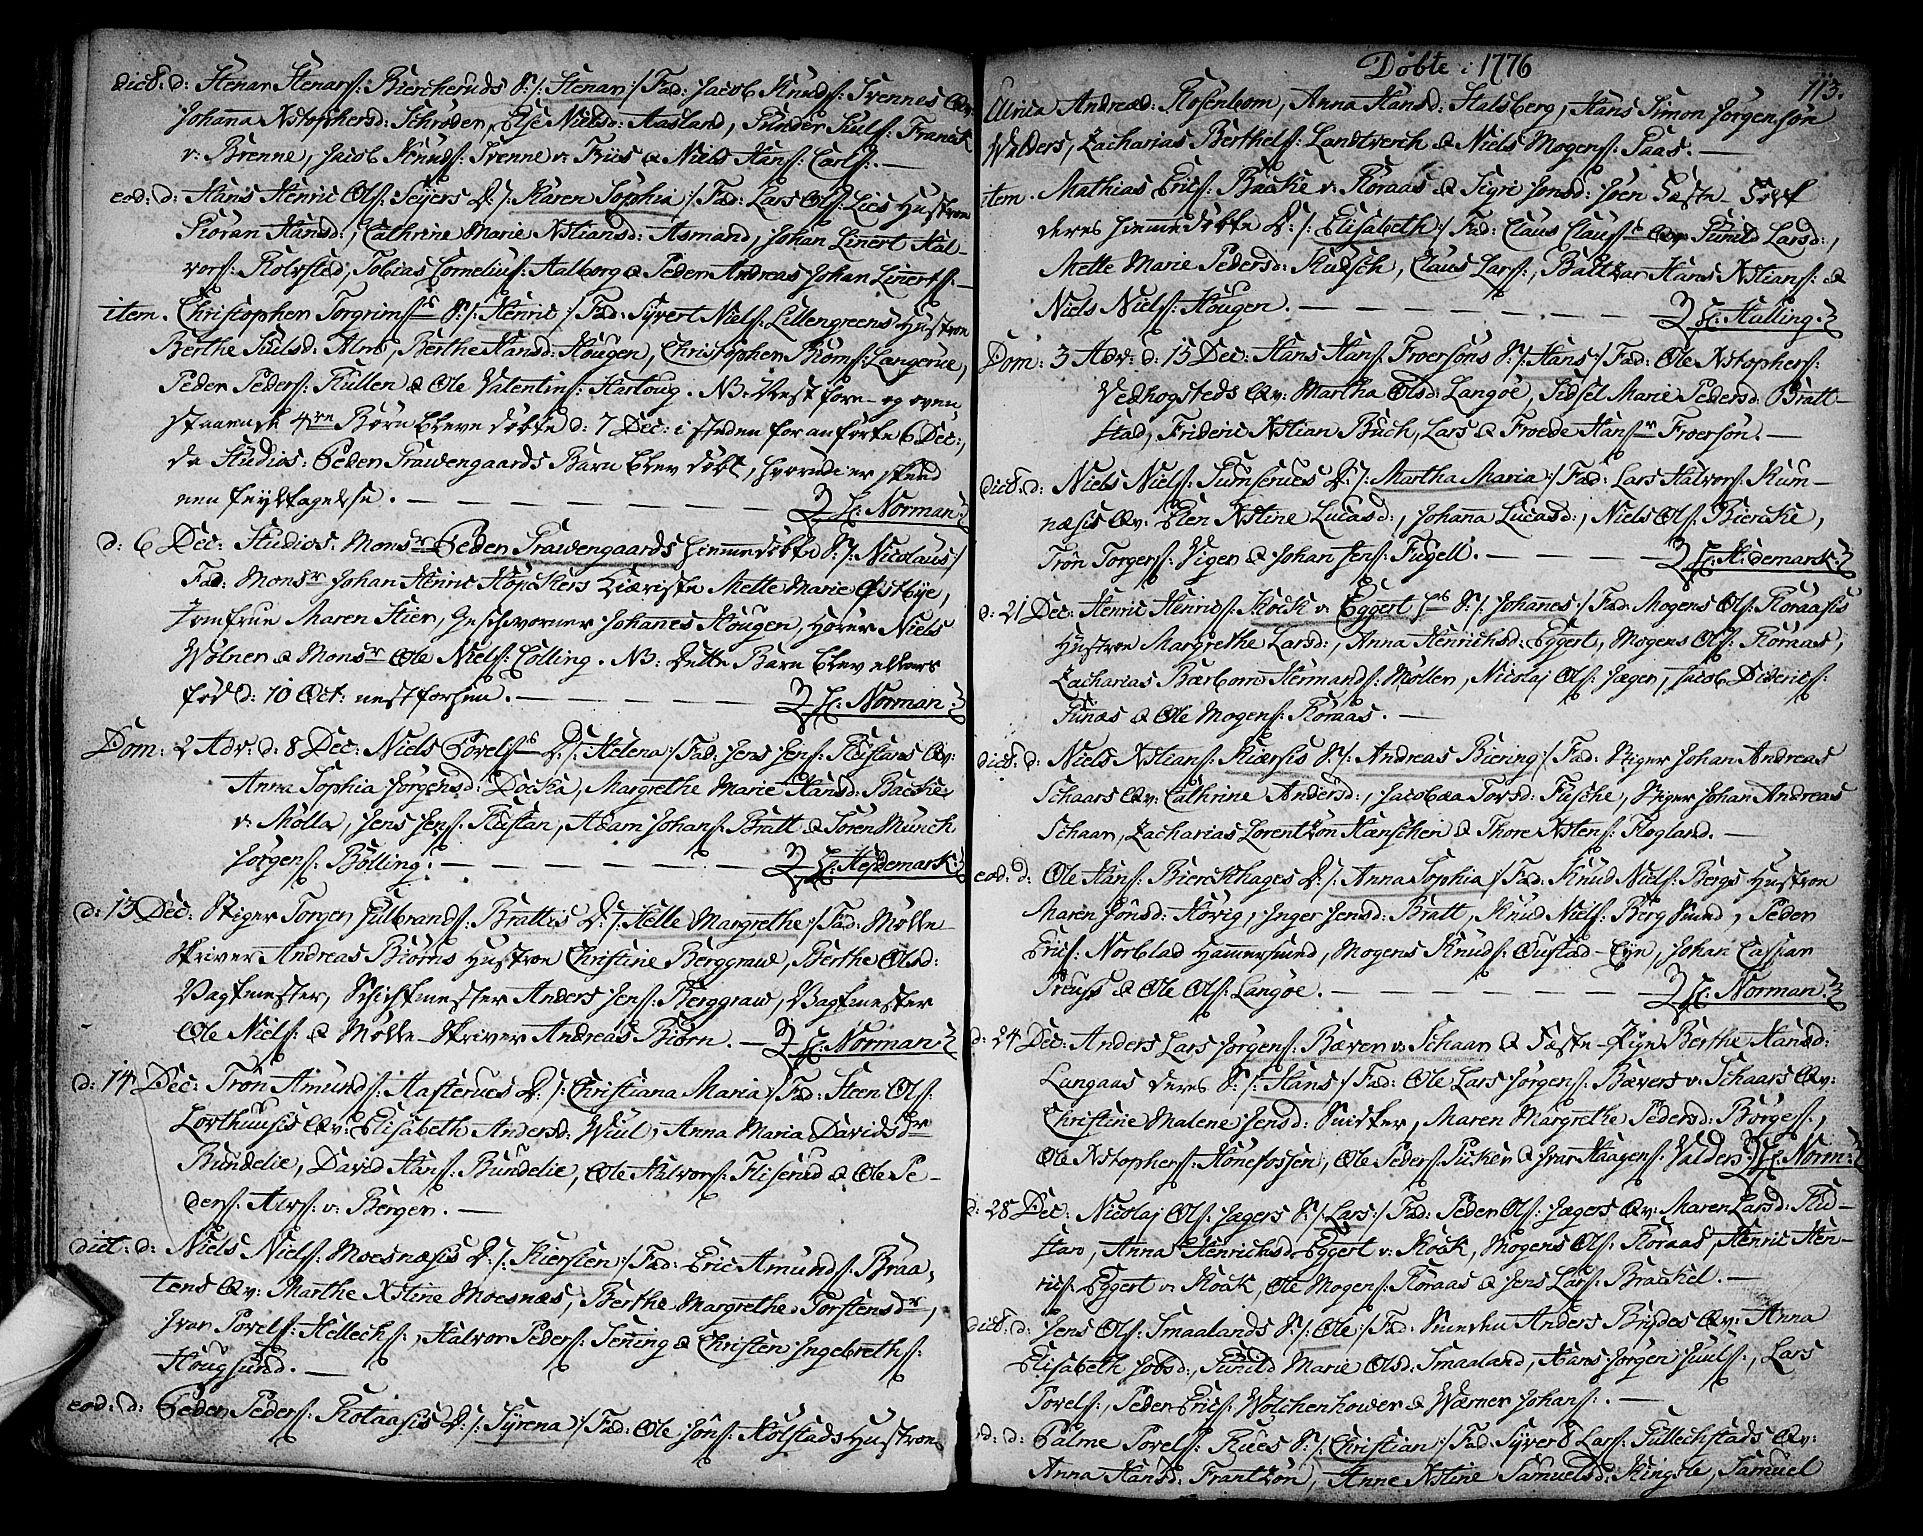 dict: d: Stenar Stenars: Biercheruds S: /: Stenar :/ Fad: Jacob Knuds: Svennes Qv:
Johana Xstophersd: Schrøder, Else Nielsd: Aasland, Gunder Juels: Franck
v: Brenne, Jacob Knuds: Svenne v: Friis & Niels Hans: Carls: —
eod: d: Hans Henric Ols: Seyers D: /: Karen Sophia :/ Fad: Lars Ols: Lies Hustroe
Giöran Hansd:, Cathrine Marie Xstiansd: Asmand, Johan Linert Hal-
vors: Rolvsted, Tobias Cornelius: Aalborg & Peder Andreas Johan Linerts: —
item. Christopher Torgrims: S: /: Henric :/ Fad: Syvert Niels: Lillengreens Hustroe
Berthe Juulsd: Alm, Berthe Hansd: Hougen, Christopher Biørns: Langerue,
Peder Peders: Kullen & Ole Valentins: Hartoug. NB: Næst fore- og oven
staaende 4re Børn bleve døbte d: 7 Dec: i steden for anførte 6 Dec:,
da Studios: Peder Trawengaards Barn blev døbt, hvorudi er skeed
een feyltagelse. — — — — — H: Norman.
d: 6 Dec: Studios: Monsr Peder Trawengaards hiemmedøbte S: /: Nicolaus :/
Fad: Monsr Johan Henric Höyckers Kiæriste Mette Marie Østbye,
Jomfrue Maren Stier, Geschworner Johannes Hougen, Hörer Niels
Wolner & Monsr Ole Niels: Colling. NB: Dette Barn blev ellers
fød d: 10 Oct: nestforhen. — — — H: Norman.
Dom: 2 Adv: d: 8 Dec: Niels Povels: D: /: Helena :/ Fad: Jens Jens: Fløstans Qv:
Anna Sophia Jörgensd: Docka, Margrethe Marie Hansd: Backe
v: Mølla, Jens Jens: Fløstan, Adam Johans: Bratt & Sören Munch
Jörgens: Bölling. — — — — H: Heydemark.
d: 13 Dec: Stiger Torger Gulbrands: Brattes D: /: Helle Margrethe :/ Fad: Mølle-
Skriver Andreas Biørns Hustroe Christine Berggraw, Berthe Olsd:
Vagtmester, Schichtmester Anders Jens: Berggraw, Vagtmester
Ole Niels: & Mølle-Skriver Andreas Biörn. — H: Norman.
d: 14 Dec: Tron Amunds: Hasterues D: /: Christiana Maria :/ Fad: Steen Ols:
Lorthuusis Qv: Elisabeth Andersd: Wiul, Anna Maria Davidsdr
Bundelie, David Hans: Bundelie, Ole Halvors: Fliserud & Ole Pe-
ders: Alvs: v: Bergen. —
dict: d: Niels Niels: Moesnæsis D: /: Kiersten :/ Fad: Eric Amunds: Braa-
tens Qv: Marthe Xstine Moesnæs, Berthe Margrethe Torstensdr,
Ivar Povels: Hellechs:, Halvor Peders: Tenning & Christen Ingebreths:
Hougsund. —
eod: d: Peder Peders: Rolaasis D: /: Syrena :/ Fad: Ole Jöns: Holstads Hustroe
Döbte i 1776
113.
Ulrica Andread: Rosenbom, Anna Hansd: Stalsberg, Hans Simon Jörgensön
Walders, Zacharias Berthels: Landtverch & Niels Mogens: Paas. —
item. Mathias Erics: Backe v: Röraas & Sigri Jonsd: Joen Fæste-Folk
deres hiemmedøbte D: /: Elisabeth :/ Fad: Claus Claus: Qv: Gunild Larsd:,
Mette Marie Pedersd: Kudsch, Claus Lars:, Baltzar Hans Xstians: &
Niels Niels: Hougen. — — — — — H: Halling.
Dom: 3 Adv: d: 15 Dec: Hans Hans: Froersöns S: /: Hans :/ Fad: Ole Xstophers:
Vedhogsteds Qv: Martha Olsd: Langöe, Sidsel Marie Pedersd: Bratt-
stad, Frideric Xstian Buch, Lars & Froede Hans: Froersön. —
dict: d: Niels Niels: Tumserues D: /: Martha Maria :/ Fad: Lars Halvors: Rum-
næsis Qv: Elen Xstine Lucasd:, Johana Lucasd:, Niels Ols: Biercke,
Tron Torgers: Vigen & Johan Jens: Fugell. — — — H: Hedemark.
d: 21 Dec: Henric Henrics: Kock v: Eggert S: /: Johannes :/ Fad: Mogens Ols: Röraasis
Hustroe Margrethe Larsd:, Anna Henrichsd: Eggert, Mogens Ols: Röraas,
Zacharias Bærbom Hermands: Möller, Nicolaj Ols: Jæger, Jacob Diderics:
Funæs & Ole Mogens: Röraas. —
dict: d: Niels Xstians: Kiærsis S: /: Andreas Biering :/ Fad: Stiger Johan Andreas
Schaars Qv: Cathrine Andersd:, Jacobæa Torsd: Fusche, Stiger Johan Andreas
Schaar, Zacharias Lorentzön Hænschen & Thore Xstens: Rogland. —
eod: d: Ole Hans: Biercthages D: /: Anna Sophia :/ Fad: Knud Niels: Bergs Hustroe
Maren Jönsd: Hövig, Inger Jensd: Bratt, Knud Niels: Berg Smed, Peder
Erics: Norblad Hammersmed, Mogens Knuds: Oustad-Eyn, Johan Cassian
Preuss & Ole Ols: Langöe. — — — — — H: Norman.
d: 24 Dec: Anders Lars Jörgens: Bæver v: Schaar & Fæste-Pige Berthe Hansd:
Langaas deres S: /: Hans :/ Fad: Ole Lars Jörgens: Bævers v: Schaars Qv:
Christine Malene Jensd: Snidker, Maren Margrethe Pedersd: Börges:,
Ole Xstophers: Hönefossen, Ole Peders: Picker & Ivar Haagens: Valders. H: Norm:
d: 28 Dec: Nicolaj Ols: Jægers S: /: Lars :/ Fad: Peder Ols: Jægers Qv: Maren Larsd: Flö-
stan, Anna Henrichsd: Eggert v: Kock, Mogens Ols: Röraas, Henric Hen-
rics: Eggert v: Kock, Ole Mogens: Röraas & Jens Lars: Brackel. —
dict: d: Jens Ols: Smaalands S: /: Ole :/ Fad: Svensku Anders Brydes Qv: Anna
Elisabeth Jobsd:, Gunild Marie Olsd: Smaaland, Hans Jörgen Juuls:, Lars
Povels:, Peder Erics: Wolchenhower & Wærner Johans:. —
eod: d: Palme Povels: Rues S: /: Christian :/ Fad: Syver Lars: Gullechstads Qv:
Anna Hansd: Frantzön, Anne Xstine Samuelsd: Kingste, Samuel